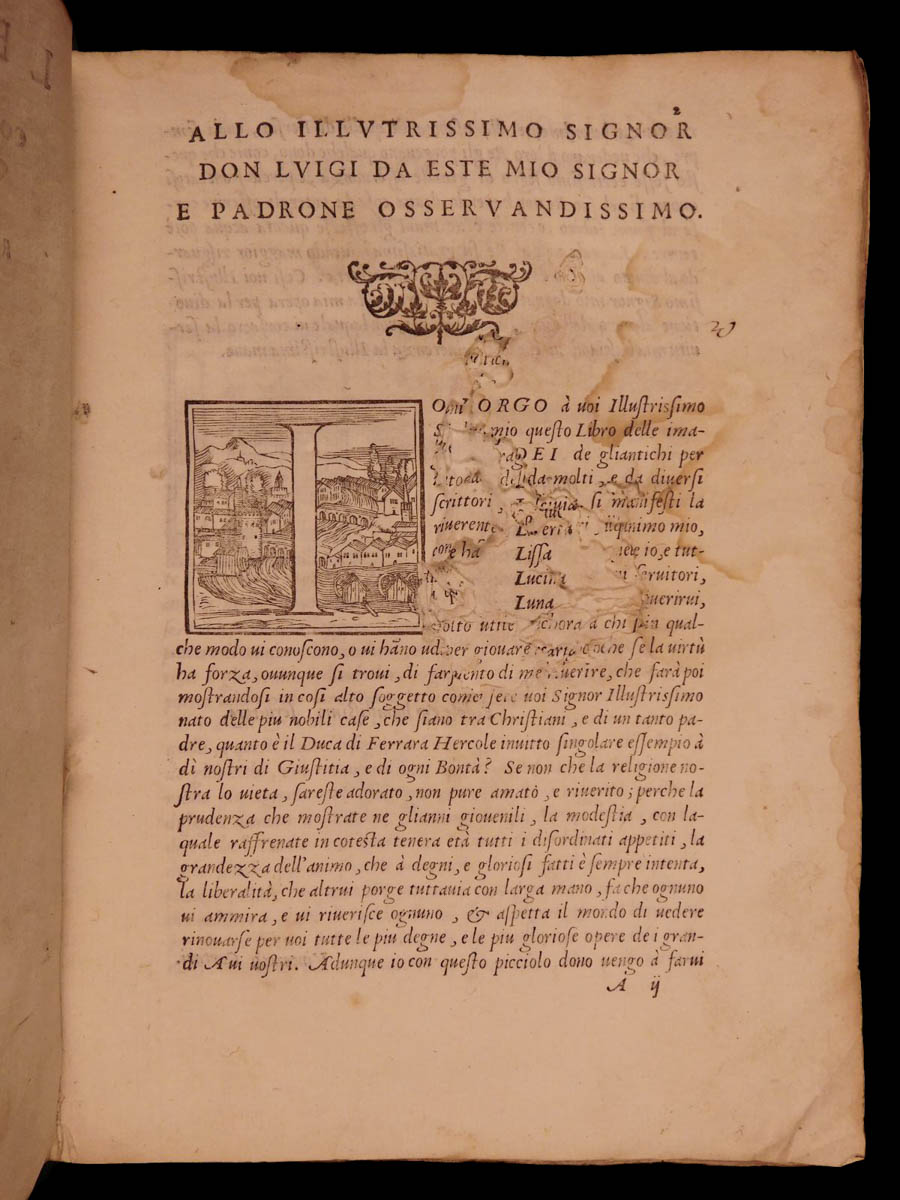 2
ALLO ILLVTRISSIMO SIGNOR
DON LVIGI DA ESTE MIO SIGNOR
E PADRONE OSSERVANDISSIMO.
I
ORGO à voi Illustrissimo
mio questo Libro delle ima-
DEI de gliantichi per
da molti, e da diversi
scrittori, si manifesti la
riverente mio,
Lissa io, e tut-
Lucina seruitori,
Luna
molto utile a chi qual-
che modo ui conoscono, o ui hāno per giouare se la uirtù
ha forza, ouunque si troui, di far riuerire, che farà poi
mostrandosi in cosi alto soggetto come sete uoi Signor Illustrissimo
nato delle piu nobili case, che siano tra Christiani, e di un tanto pa-
dre, quanto è il Duca di Ferrara Hercole inuitto singolare essempio à
dì nostri di Giustitia, e di ogni Bontà? Se non che la religione no-
stra lo uieta, sareste adorato, non pure amatò, e riuerito; perche la
prudenza che mostrate ne glianni giouenili, la modestia, con la-
quale raffrenate in cotesta tenera età tutti i disordinati appetiti, la
grandezza dell'animo, che à degni, e gloriosi fatti è sempre intenta,
la liberalità, che altrui porge tuttauia con larga mano, fa che ognuno
ui ammira, e ui riuerisce ognuno, & aspetta il mondo di uedere
rinouarse per uoi tutte le piu degne, e le piu gloriose opere de i gran-
di Aui uostri. Adunque io con questo picciolo dono uengo à farui
A ij